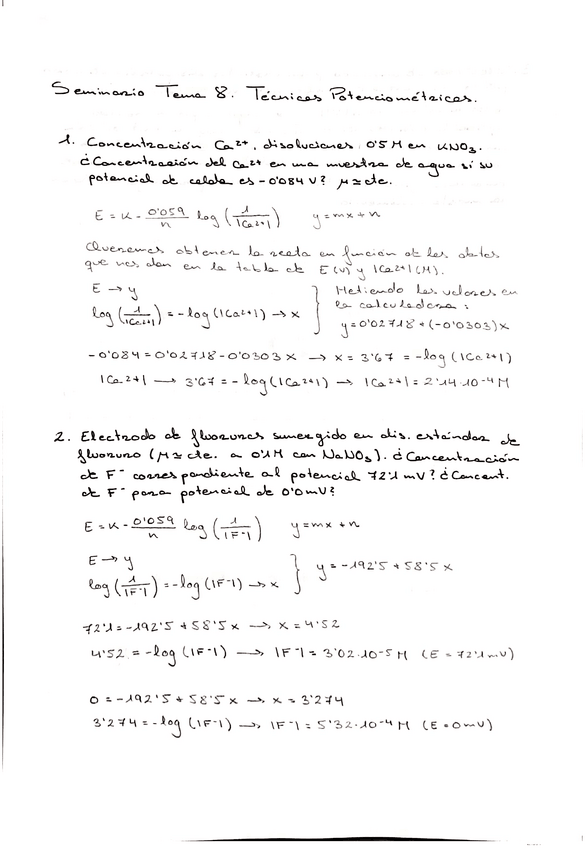 Seminario Tema 8. Técnicas Potenciométricas.
1. Concentración Ca²⁺, disoluciones 0'5 M en KNO₃.
¿Concentración del Ca²⁺ en una muestra de agua si su
potencial de celda es -0'084 V? μ≃cte.
E = K - 0'059/n log (1/|Ca²⁺|) y=mx+n
Queremos obtener la recta en función de los datos
que nos dan en la tabla de E(V) y |Ca²⁺|(M).
E → y
log(1/|Ca²⁺|) = -log(|Ca²⁺|) → x
Metiendo los valores en
la calculadora:
y=0'02718+(-0'0303)x
-0'084=0'02718-0'0303x → x=3'67 = -log(|Ca²⁺|)
|Ca²⁺| → 3'67=-log(|Ca²⁺|) → |Ca²⁺|=2'14·10⁻⁴ M
2. Electrodo de fluoruros sumergido en dis. estándar de
fluoruro (μ≃cte. a 0'1M con NaNO₃). ¿Concentración
de F⁻ correspondiente al potencial 72'1 mV? ¿Concent.
de F⁻ para potencial de 0'0 mV?
E=K-0'059/n log (1/|F⁻|) y=mx+n
E → y
log(1/|F⁻|)=-log(|F⁻|) → x
y=-192'5+58'5x
72'1=-192'5+58'5x → x=4'52
4'52=-log(|F⁻|) → |F⁻|=3'02·10⁻⁵ M (E=72'1mV)
0=-192'5+58'5x → x=3'274
3'274=-log(|F⁻|) → |F⁻|=5'32·10⁻⁴ M (E=0mV)